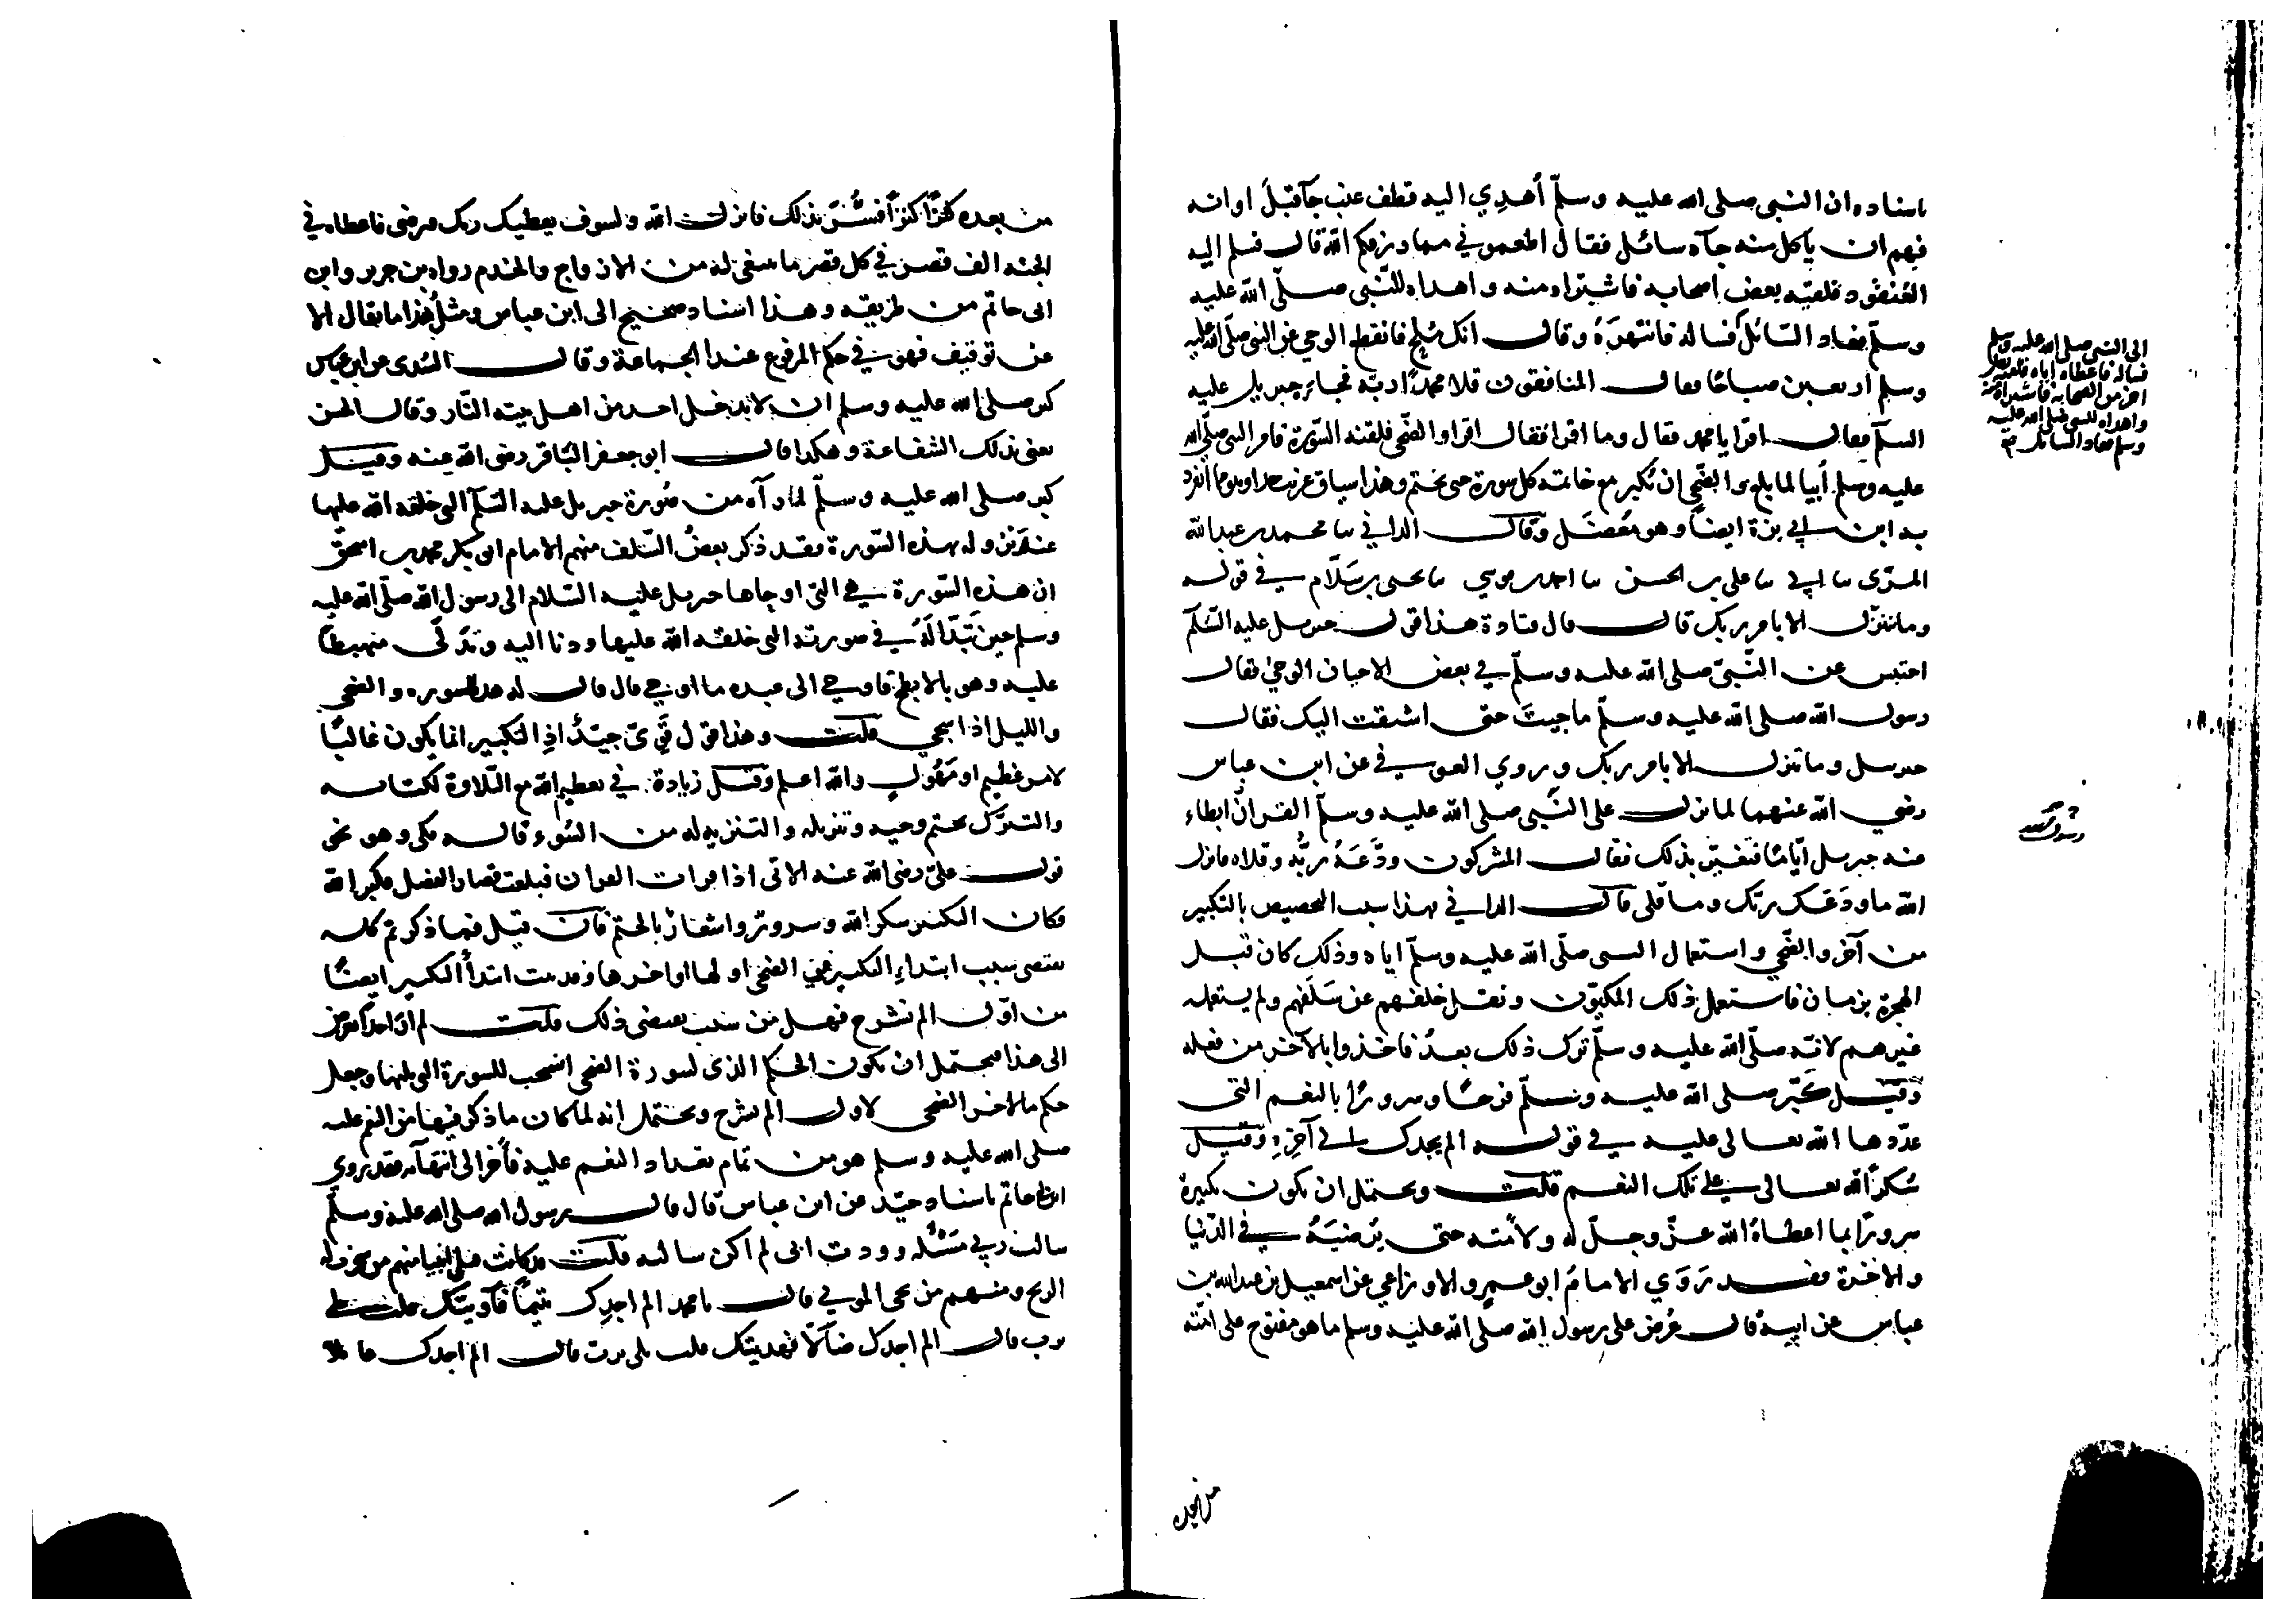 باسناده ان النبي صلى الله عليه وسلّم أهدي اليه قطف عنب جآ قبل اوانه
فهم ان يأكل منه جآه سائل فقال اطعموني مما رزقكم الله قال فسلم اليه
العنقود فلقيه بعض اصحابه فاشتراه منه واهداه للنّبي صلّى الله عليه
وسلّم فعاد السّائل فساله فانتهره وقال انك ملح فانقطع الوحي عن النبي صلّى الله عليه
وسلم اربعين صباحًا فقال المنافقون قلا محمدًا ربّه فجاء جبريل عليه
السلم فقال اقرا يا محمد فقال وما اقرا فقال اقرا والضّحى فلقنه السّورة فامر النبي صلّى الله
عليه وسلم أبيا لما بلغ والضّحى ان يُكبر مع خاتمة كل سورة حتى يختم وهذا سياق غريب جدا وهو مما انفرد
به ابن ابي بزة ايضًا وهو مُعضَل وقال الداني سا محمد بن عبدالله
المرّى سا ابي سا علي بن الحسن سا احمد بن موسى سا يحيى بن سَلّام في قوله
وما نتنزّل الا بامر ربك قال قال قتادة هذا قول جبريل عليه السّلم
احتبس عن النّبيّ صلى الله عليه وسلّم في بعض الاحيان الوحيُ فقال
رسول الله صلى الله عليه وسلّم ما جيتَ حتى اشتقت اليك فقال
جبريل وما نتنزل الا بامر ربك وروي العوفي عن ابن عباس
رضي الله عنهما لما نزل على النّبي صلى الله عليه وسلّم القرانُ ابطاء
عنه جبريل ايّامًا فتغيّر بذلك فقال المشركون ودّعَهُ ربُّه وقلاه فانزل
الله ما ودَعك ربّك وما قلى قال الداني فهذا سبب التخصيص بالتكبير
من آخر والضّحي واستعمال النبي صلّى الله عليه وسلّم اياه وذلك كان قبل
الهجرة بزمان فاستعمل ذلك المكيّون ونقل خلفهم عن سَلَفهم ولم يستعمله
غيرهم لانّه صلّى الله عليه وسلّم ترك ذلك بعدُ فاخذوا بالآخر من فعله
وقيل كبّر صلى الله عليه وسلّم فرحًا وسرورًا بالنعم التي
عدّدها الله تعالى عليه في قوله الم يجدك الى آخرِهِ وقيل
شكرًا لله تعالى على تلك النعم قلت ويحتمل ان يكون تكبيرة
سرورًا بما اعطاهُ الله عزّ وجلّ له ولامّته حتى يُرضيَهُ في الدّنيا
والاخرة فقد رَوَي الامامُ ابو عمرو الاوزاعي عن اسمعيل بن عبدالله بن
عباس عن ابيه قال عُرض على رسول الله صلى الله عليه وسلم ما هو مفتوح على امّته
الى النبي صلى الله عليه وسلم
فساله فاعطاه اياه فلقيه رجل
اخر من الصحابه فاشتراه منه
واهداه للنبي صلى الله عليه
وسلم فعاد السائل صح
من بعده كنزًا كنزًا فسُرّ بذلك فانزل الله ولسوف يعطيك ربك فترضى فاعطاه في
الجنه الف قصر في كل قصر ما ينبغي له من الازواج والخدم رواه بن جرير وابن
ابى حاتم من طريقه وهذا اسناد صحيح الى ابن عباس ومثلُ هذا ما يقال الا
عن توقيف فهو في حكم المرفوع عند الجماعة وقال السّدى عن ابن عباس
كبر صلى الله عليه وسلم ان لا يدخل احد من اهل بيته النّار وقال الحسن
يعنى بذلك الشفاعة وهكذا قال ابو جعفر البّاقر رضى الله عنه وقيل
كبر صلى الله عليه وسلّم لما رآه من صُورة جبريل عليه السّلم التي خلقه الله عليها
عند نزوله بهذه السّورة فقد ذكر بعضُ السّلف منهم الامام ابو بكر محمد بن اسحق
ان هذه السّورة هي التى اوحاها جبريل عليه السّلام الى رسول الله صلّى الله عليه
وسلم حين تبّدا لَهُ في صورته التى خلقه الله عليها ودنا اليه وتدّلّى منهبطًا
عليه وهو بالابطح فاوحي الى عبده ما اوحي قال قال له هذه السوره والضحى
والليل اذا سجى قلت وهذا قول قوّى جيّدٌ اذِ التكبير انما يكون غالبًا
لامر عظيم او مَهُولٍ والله اعلم وقيل زيادة في تعظيم الله مع التّلاوة لكتابه
والتبرّك بختم وحيه وتنزيله والتنزيه له من السّوء قاله مكى وهو نحو
قول عليّ رضى الله عنه الاتى اذا قرات القران فبلغت قصار المفصل فكبر الله
فكان التكبير شكر الله وسرورٌ واشعارٌ بالختم فان قيل فما ذكرتم كله
يقتضى سبب ابتداءِ التكبير في الضحى اولها او اخرها وقد ثبت ابتداُ التكبير ايضًا
من اوّل الم نشرح فهل من سبب يقتضى ذلك قلت لم ار احدا تعرض
الى هذا فيحتمل ان يكون الحكم الذى لسورة الضحى انسحب للسورة التى يليها وجعل
حكم ما لاخر الضحى لاول الم نشرح ويحتمل انه لما كان ما ذكر فيها من النعم عليه
صلى الله عليه وسلم هو من تمام تعداد النعم عليه فاُخر الى انتهآئه فقد روي
ابن ابي حاتم باسناد جيّد عن ابن عباس قال قال رسول الله صلى الله عليه وسلّم
سالت ربي مَسْئله وودت انى لم اكن سالته قلت قد كانت قبلي انبيا منهم من سخرت له
الريح ومنهم من يحى الموتي قال يا محمد الم اجدك يتيمًا فآويتك قلت بلى
يرب قال الم اجدك ضآلًا فهديتك قلت بلى يرب قال الم اجدك عائلا